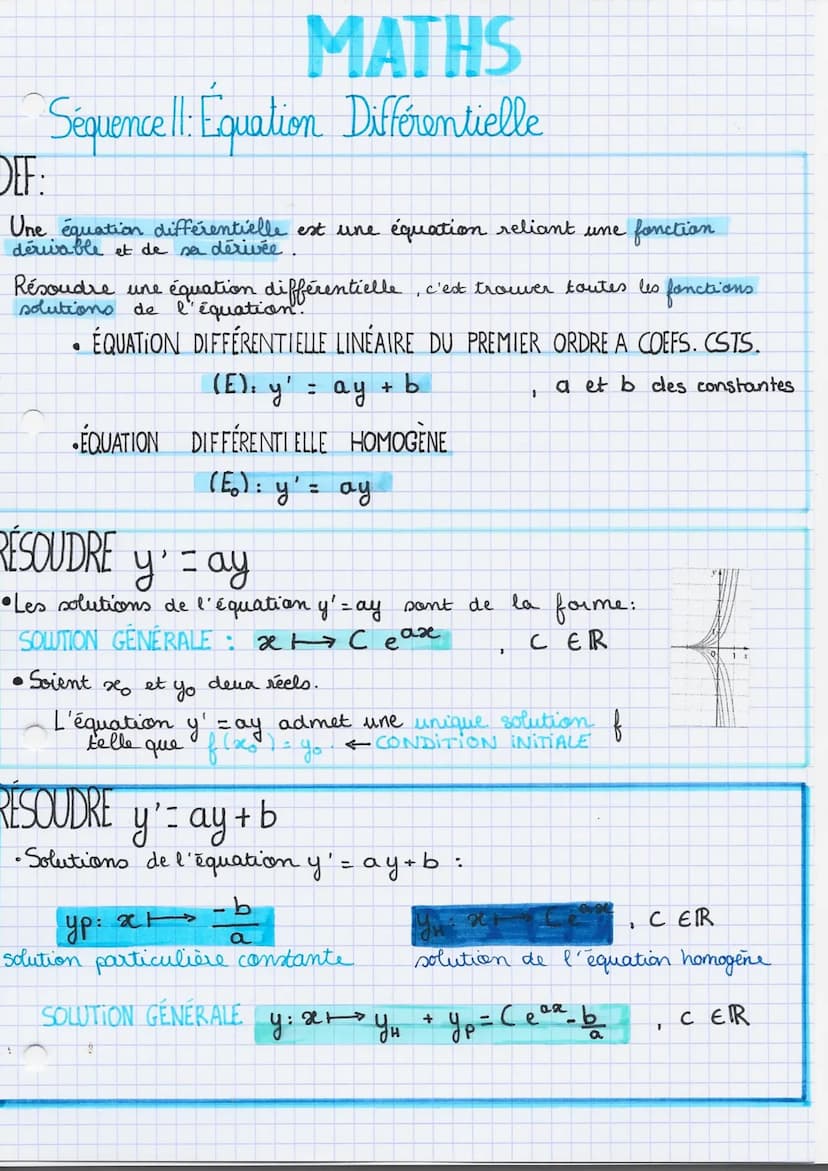 MATHS
Séquence 11: Équation Différentielle
DEF:
Une équation différentielle est une équation reliant une fonction
dérivable et de sa dérivée.
Résoudre une équation différentielle, c'est trouver toutes les fonctions
solutions de l'équation.
• ÉQUATION DIFFÉRENTIELLE LINÉAIRE DU PREMIER ORDRE A COEFS. CSTS.
(E): y' = ay + b , a et b des constantes
• ÉQUATION DIFFÉRENTIELLE HOMOGÈNE
(E₀): y' = ay
RÉSOUDRE y' = ay
• Les solutions de l'équation y' = ay sont de la forme:
SOLUTION GÉNÉRALE : x ⟼ C eᵃˣ , C ∈ ℝ
• Soient x₀ et y₀ deux réels.
L'équation y' = ay admet une unique solution f
telle que f(x₀) = y₀. ← CONDITION INITIALE
RÉSOUDRE y' = ay + b
• Solutions de l'équation y' = ay + b :
yp: x ⟼ -b/a
y_H: x ⟼ C eᵃˣ , C ∈ ℝ
solution particulière constante
solution de l'équation homogène
SOLUTION GÉNÉRALE y: x ⟼ y_H + y_p = C eᵃˣ - b/a , C ∈ ℝ